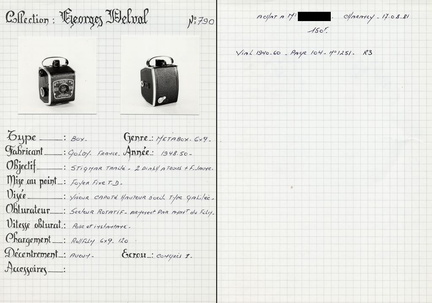 Collection : Georges Delval N°: 790
Type : Box. Genre : METABOX. 6x9.
Fabricant : GOLDY. FRANCE. Année : 1948.50.
Objectif : STIGMAR TRIPLE.
Mise au point : Foyer Fixe T.D.
Visée : VISEUR CAPOTE HAUTEUR D'OEIL TYPE GALILÉE.
Obturateur : SECTEUR ROTATIF.
Vitesse obturat : Pose et instantanée.
Chargement : ROLLFILM 6x9. 120
Décentrement : AUCUN. Ecrou : CONGRES 1.
Accessoires :
ACHAT A Mr 17.02.81
150F.
Vial 1940.60. PAGE 104. N°1251. R3